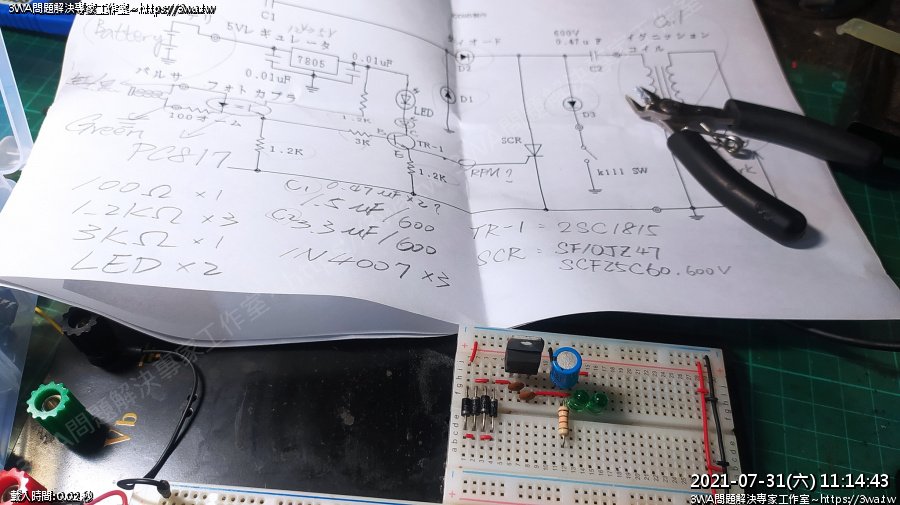 3WA問題解決專家工作室~https://3wa.tw
C1
Battery
5Vレギュレータ
7805
0.01uF
0.01uF
パルサ
フォトカプラ
100オーム
Green
PC817
1.2K
1.2K
3K
LED
TR-1
1.2K
D2
D1
SCR
RPM?
600V
0.47uF
C2
D3
kill SW
イグニッション
コイル
100Ω×1
1.2KΩ×3
3KΩ×1
LED×2
C1 0.47uF×2?
1.5uF/600
C2 3.3uF/600
1N4007×3
TR-1=2SC1815
SCR=SF10JZ47
SCF25C60.600V
3WA問題解決專家工作室
Vb
載入時間: 0.02 秒
2021-07-31(六) 11:14:43
3WA問題解決專家工作室~https://3wa.tw